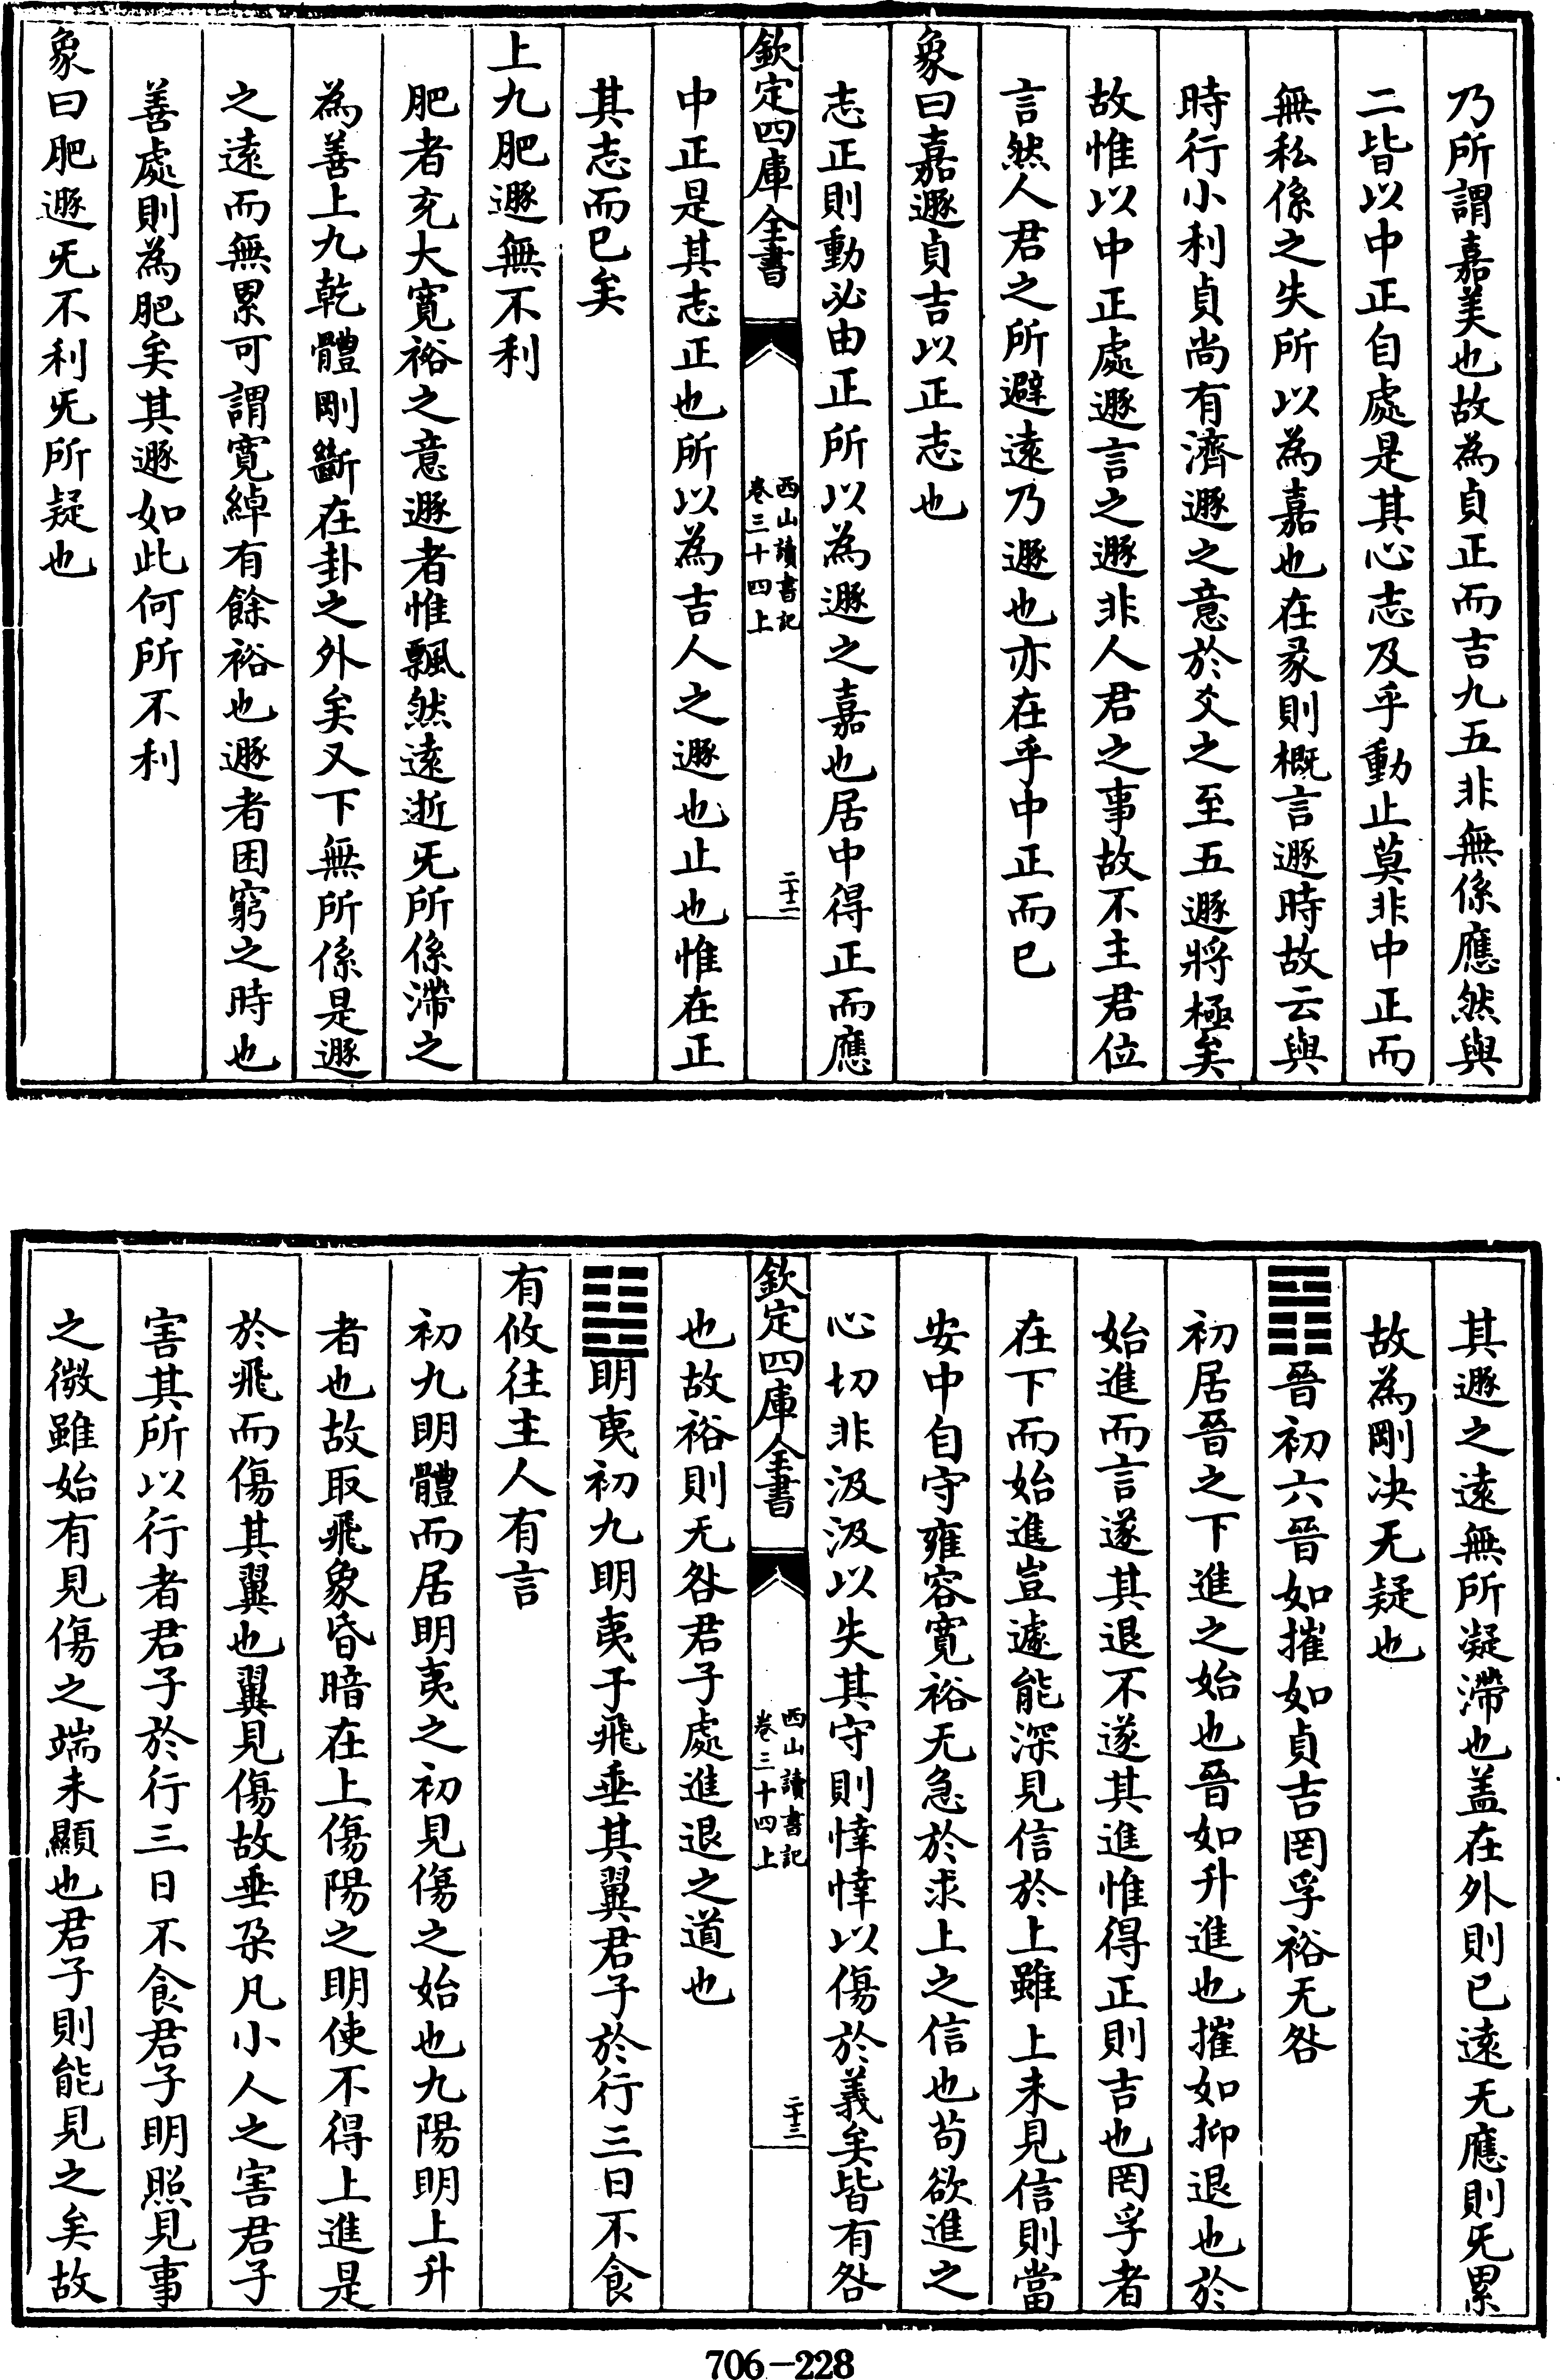 乃所謂嘉美也故為貞正而吉九五非無係應然與
二皆以中正自處是其心志及乎動止莫非中正而
無私係之失所以為嘉也在彖則概言遯時故云與
時行小利貞尚有濟遯之意於爻之至五遯將極矣
故惟以中正處遯言之遯非人君之事故不主君位
言然人君之所避遠乃遯也亦在乎中正而已
象曰嘉遯貞吉以正志也
志正則動必由正所以為遯之嘉也居中得正而應
欽定四庫全書
西山讀書記
卷三十四上
二十二
中正是其志正也所以為吉人之遯也止也惟在正
其志而已矣
上九肥遯無不利
肥者充大寛裕之意遯者惟飄然遠逝旡所係滯之
為善上九乾體剛斷在卦之外矣又下無所係是遯
之遠而無累可謂寛綽有餘裕也遯者困窮之時也
善處則為肥矣其遯如此何所不利
象曰肥遯旡不利旡所疑也
其遯之遠無所凝滯也盖在外則已遠无應則旡累
故為剛决无疑也
䷢晉初六晉如摧如貞吉罔孚裕无咎
初居晉之下進之始也晉如升進也摧如抑退也於
始進而言遂其退不遂其進惟得正則吉也罔孚者
在下而始進豈遽能深見信於上雖上未見信則當
安中自守雍容寛裕无急於求上之信也苟欲進之
心切非汲汲以失其守則悻悻以傷於義矣皆有咎
欽定四庫全書
西山讀書記
卷三十四上
二十三
也故裕則无咎君子處進退之道也
䷣明夷初九明夷于飛垂其翼君子於行三日不食
有攸往主人有言
初九明體而居明夷之初見傷之始也九陽明上升
者也故取飛象昏暗在上傷陽之明使不得上進是
於飛而傷其翼也翼見傷故垂朶凡小人之害君子
害其所以行者君子於行三日不食君子明照見事
之微雖始有見傷之端未顯也君子則能見之矣故
706-228